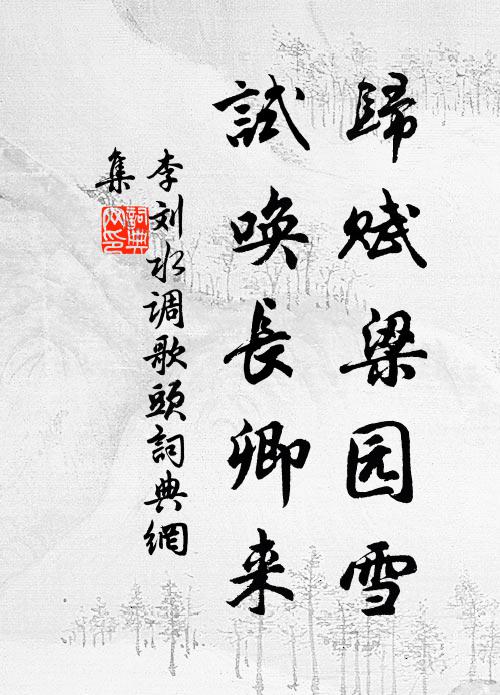 歸赋梁园雪
試唤長卿来
李刘水调歌頭詞典網
集
詞典
网印